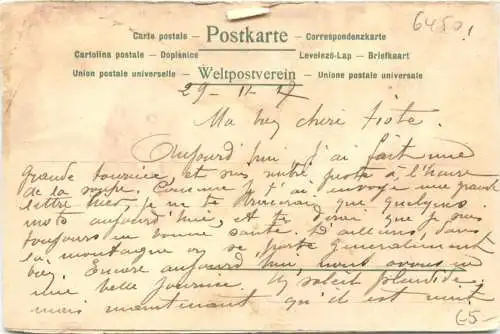 6450,
Carte postale – Postkarte – Correspondenzkarte
Cartolina postale – Dopisnice Levelező-Lap – Briefkaart
Union postale universelle – Weltpostverein – Unione postale universale
29-11-17
Ma bien chère
Aujourd'hui, j'ai fait une
grande tournée, et suis rentré juste à l'heure
de la soupe. Comme je t'ai envoyé une grande
lettre hier, je ne que quelques
mots aujourd'hui, et te dirai que je suis
toujours en bonne santé. D'ailleurs, dans
la montagne on se porte généralement
bien. Encore aujourd'hui, nous avons eu
une belle journée. Un soleil splendide.
mais maintenant qu'il est nuit
65-